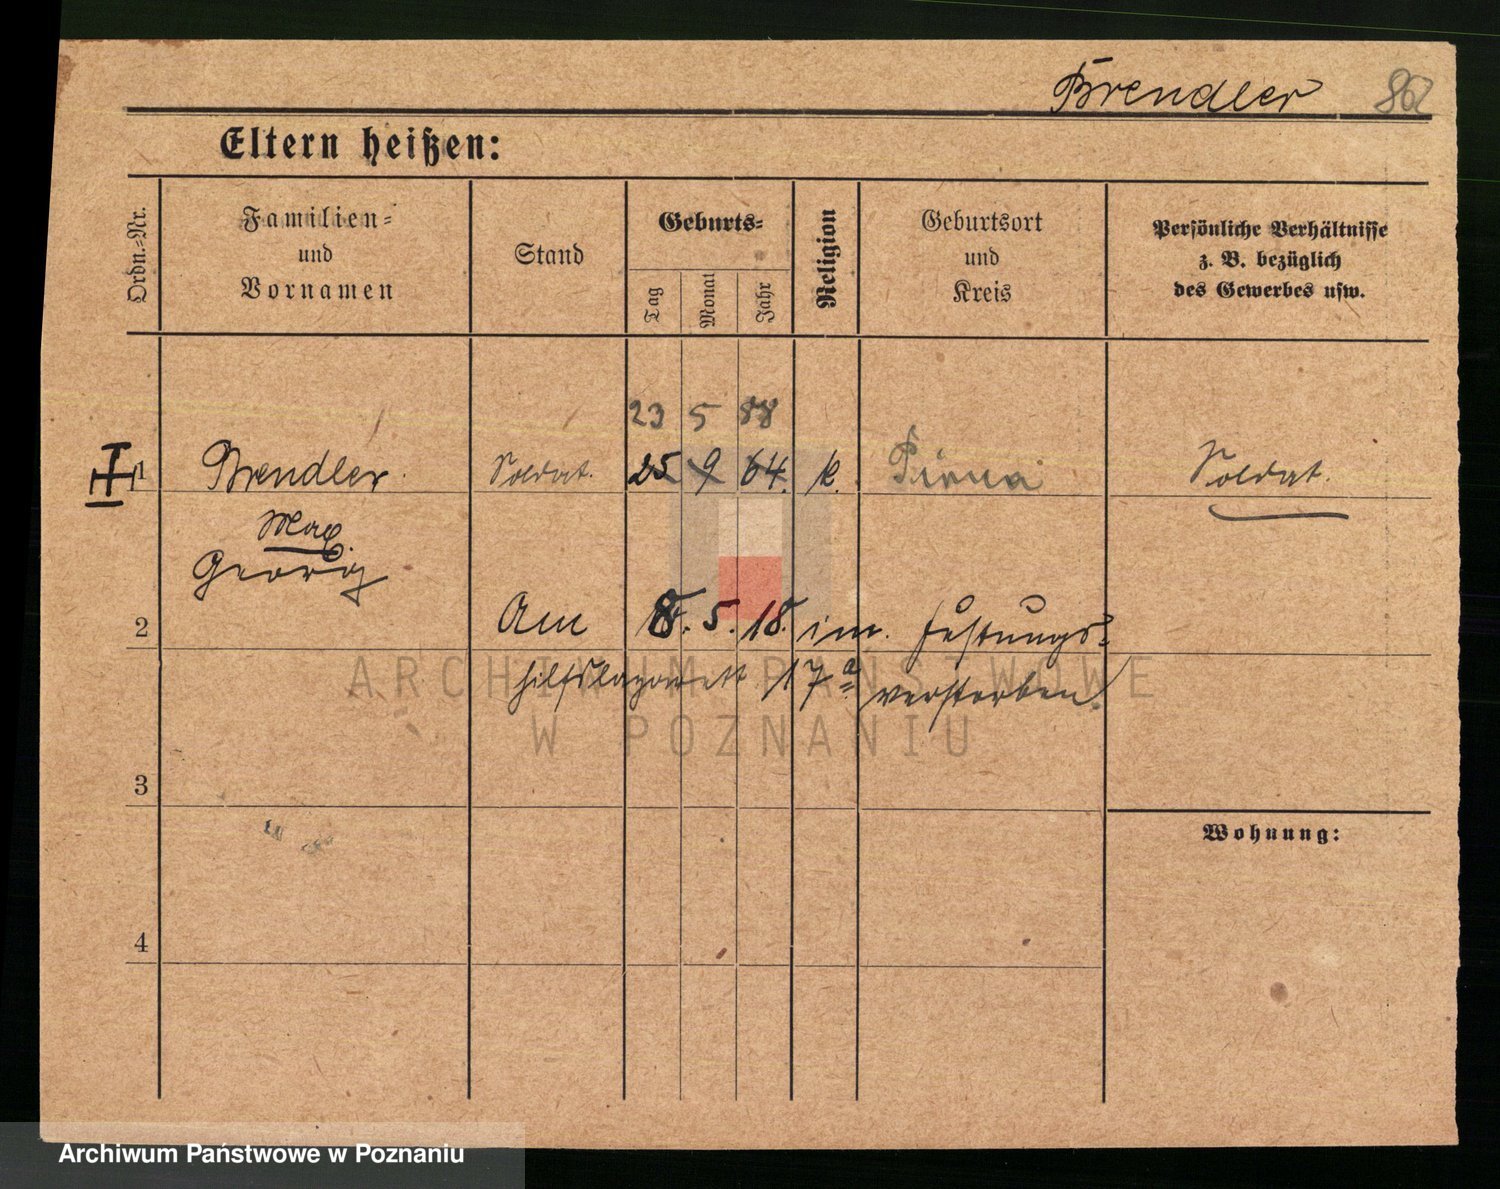 Brendler 862
Eltern heißen:
Ordn.-Nr.
Familien-
und
Vornamen
Stand
Geburts-
Tag
Monat
Jahr
Religion
Geburtsort
und
Kreis
Persönliche Verhältnisse
z. B. bezüglich
des Gewerbes usw.
23 5 88
1 Brendler Soldat. 25 9 64. k. Pirna Soldat.
Max
Georg
2 Am 8. 5. 18. im Festungs-
hilfslazarett 17a verstorben.
ARCHIWUM PAŃSTWOWE
W POZNANIU
3
Wohnung:
4
Archiwum Państwowe w Poznaniu